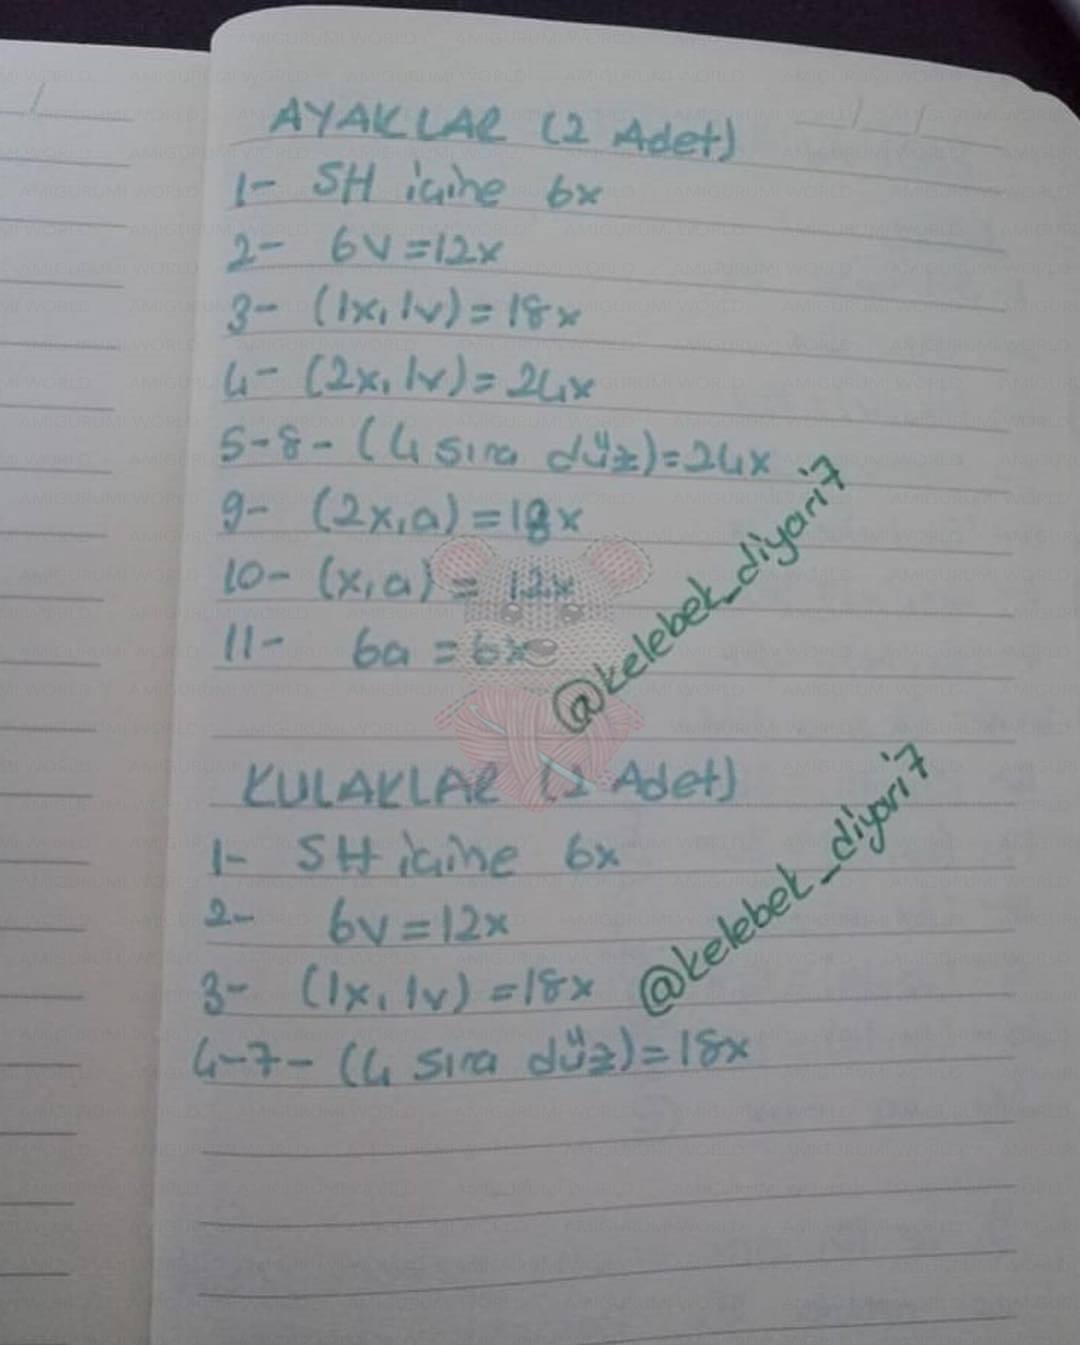 AYAKLAR (2 Adet)
1- SH içine 6x
2- 6v=12x
3- (1x, 1v)=18x
4- (2x, 1v)=24x
5-8- (4 sıra düz)=24x
9- (2x, a)=18x
10- (x, a) = 12x
11- 6a = 6x
@kelebek_diyari7
KULAKLAR (2 Adet)
1- SH içine 6x
2- 6v=12x
3- (1x, 1v) =18x
@kelebek_diyari7
4-7- (4 sıra düz)=18x